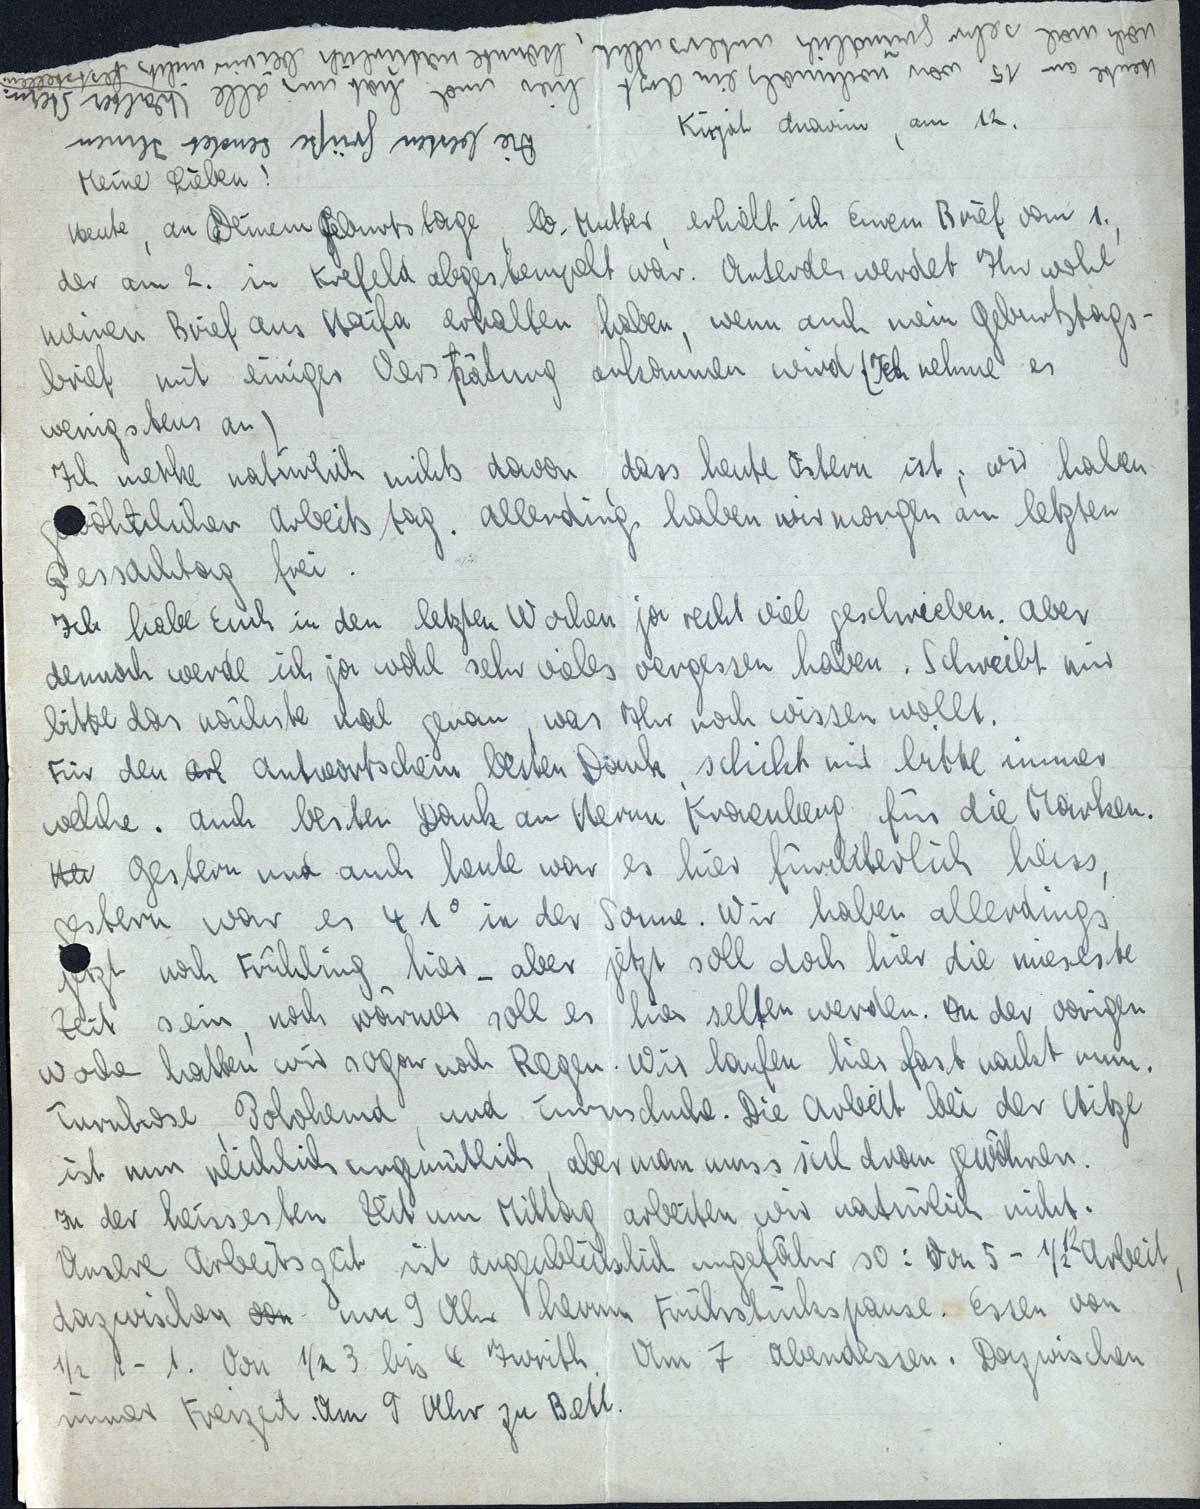 Heute am 15 war nochmals ein Arzt hier und hat uns alle
noch mal sehr gründlich untersucht, konnte natürlich bei mir nichts feststellen.
Die besten Grüße sendet Ihnen Walter Stern
Kirjat Anavim, am 12.
Meine Lieben!
Heute, an Deinem Geburtstage, lb. Mutter, erhielt ich Euren Brief vom 1.,
der am 2. in Krefeld abgestempelt war. Unterdes werdet Ihr wohl
meinen Brief aus Haifa erhalten haben, wenn auch mein Geburtztags-
brief mit einiger Verspätung ankommen wird (Ich nehme es
wenigstens an)
Ich merke natürlich nichts davon, dass heute Ostern ist; wir haben
gewöhnlichen Arbeitstag. Allerdings haben wir morgen am letzten
Pessachtag frei.
Ich habe Euch in den letzten Wochen ja recht viel geschrieben. Aber
dennoch werde ich ja wohl sehr vieles vergessen haben. Schreibt mir
bitte das nächste mal genau, was Ihr noch wissen wollt.
Für den Antwortschein besten Dank, schickt mir bitte immer
welche. Auch besten Dank an Herrn Kraenberg für die Marken.
Gestern und auch heute war es hier fürchterlich heiss,
gestern war es 41° in der Sonne. Wir haben allerdings
jetzt noch Frühling hier - aber jetzt soll doch hier die mieseste
Zeit sein, noch wärmer soll es hier selten werden. In der vorigen
Woche hatten wir sogar noch Regen. Wir laufen hier fast nackt rum.
Turnhose, Polohemd und Turnschuhe. Die Arbeit bei der Hitze
ist nun reichlich ungemütlich, aber man muss sich dran gewöhnen.
In der heissesten Zeit um Mittag arbeiten wir natürlich nicht.
Unsere Arbeitszeit ist augenblicklich ungefähr so: Von 5 - 1/2 12 Arbeit,
dazwischen um 9 Uhr herum Frühstückspause. Essen von
1/2 1 - 1. Von 1/2 3 bis 4 Iwrith. Um 7 Abendessen. Dazwischen
immer Freizeit. Um 9 Uhr zu Bett.